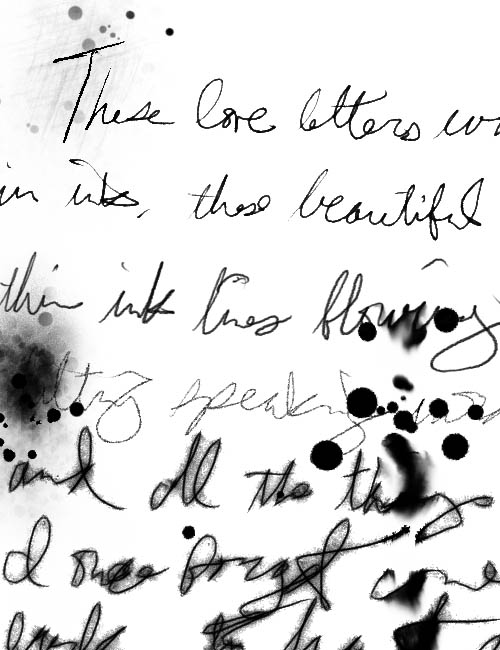 These love letters
in ink, those beautiful
thin ink lines flowing
speaking
and all the things
I once forgot come
to